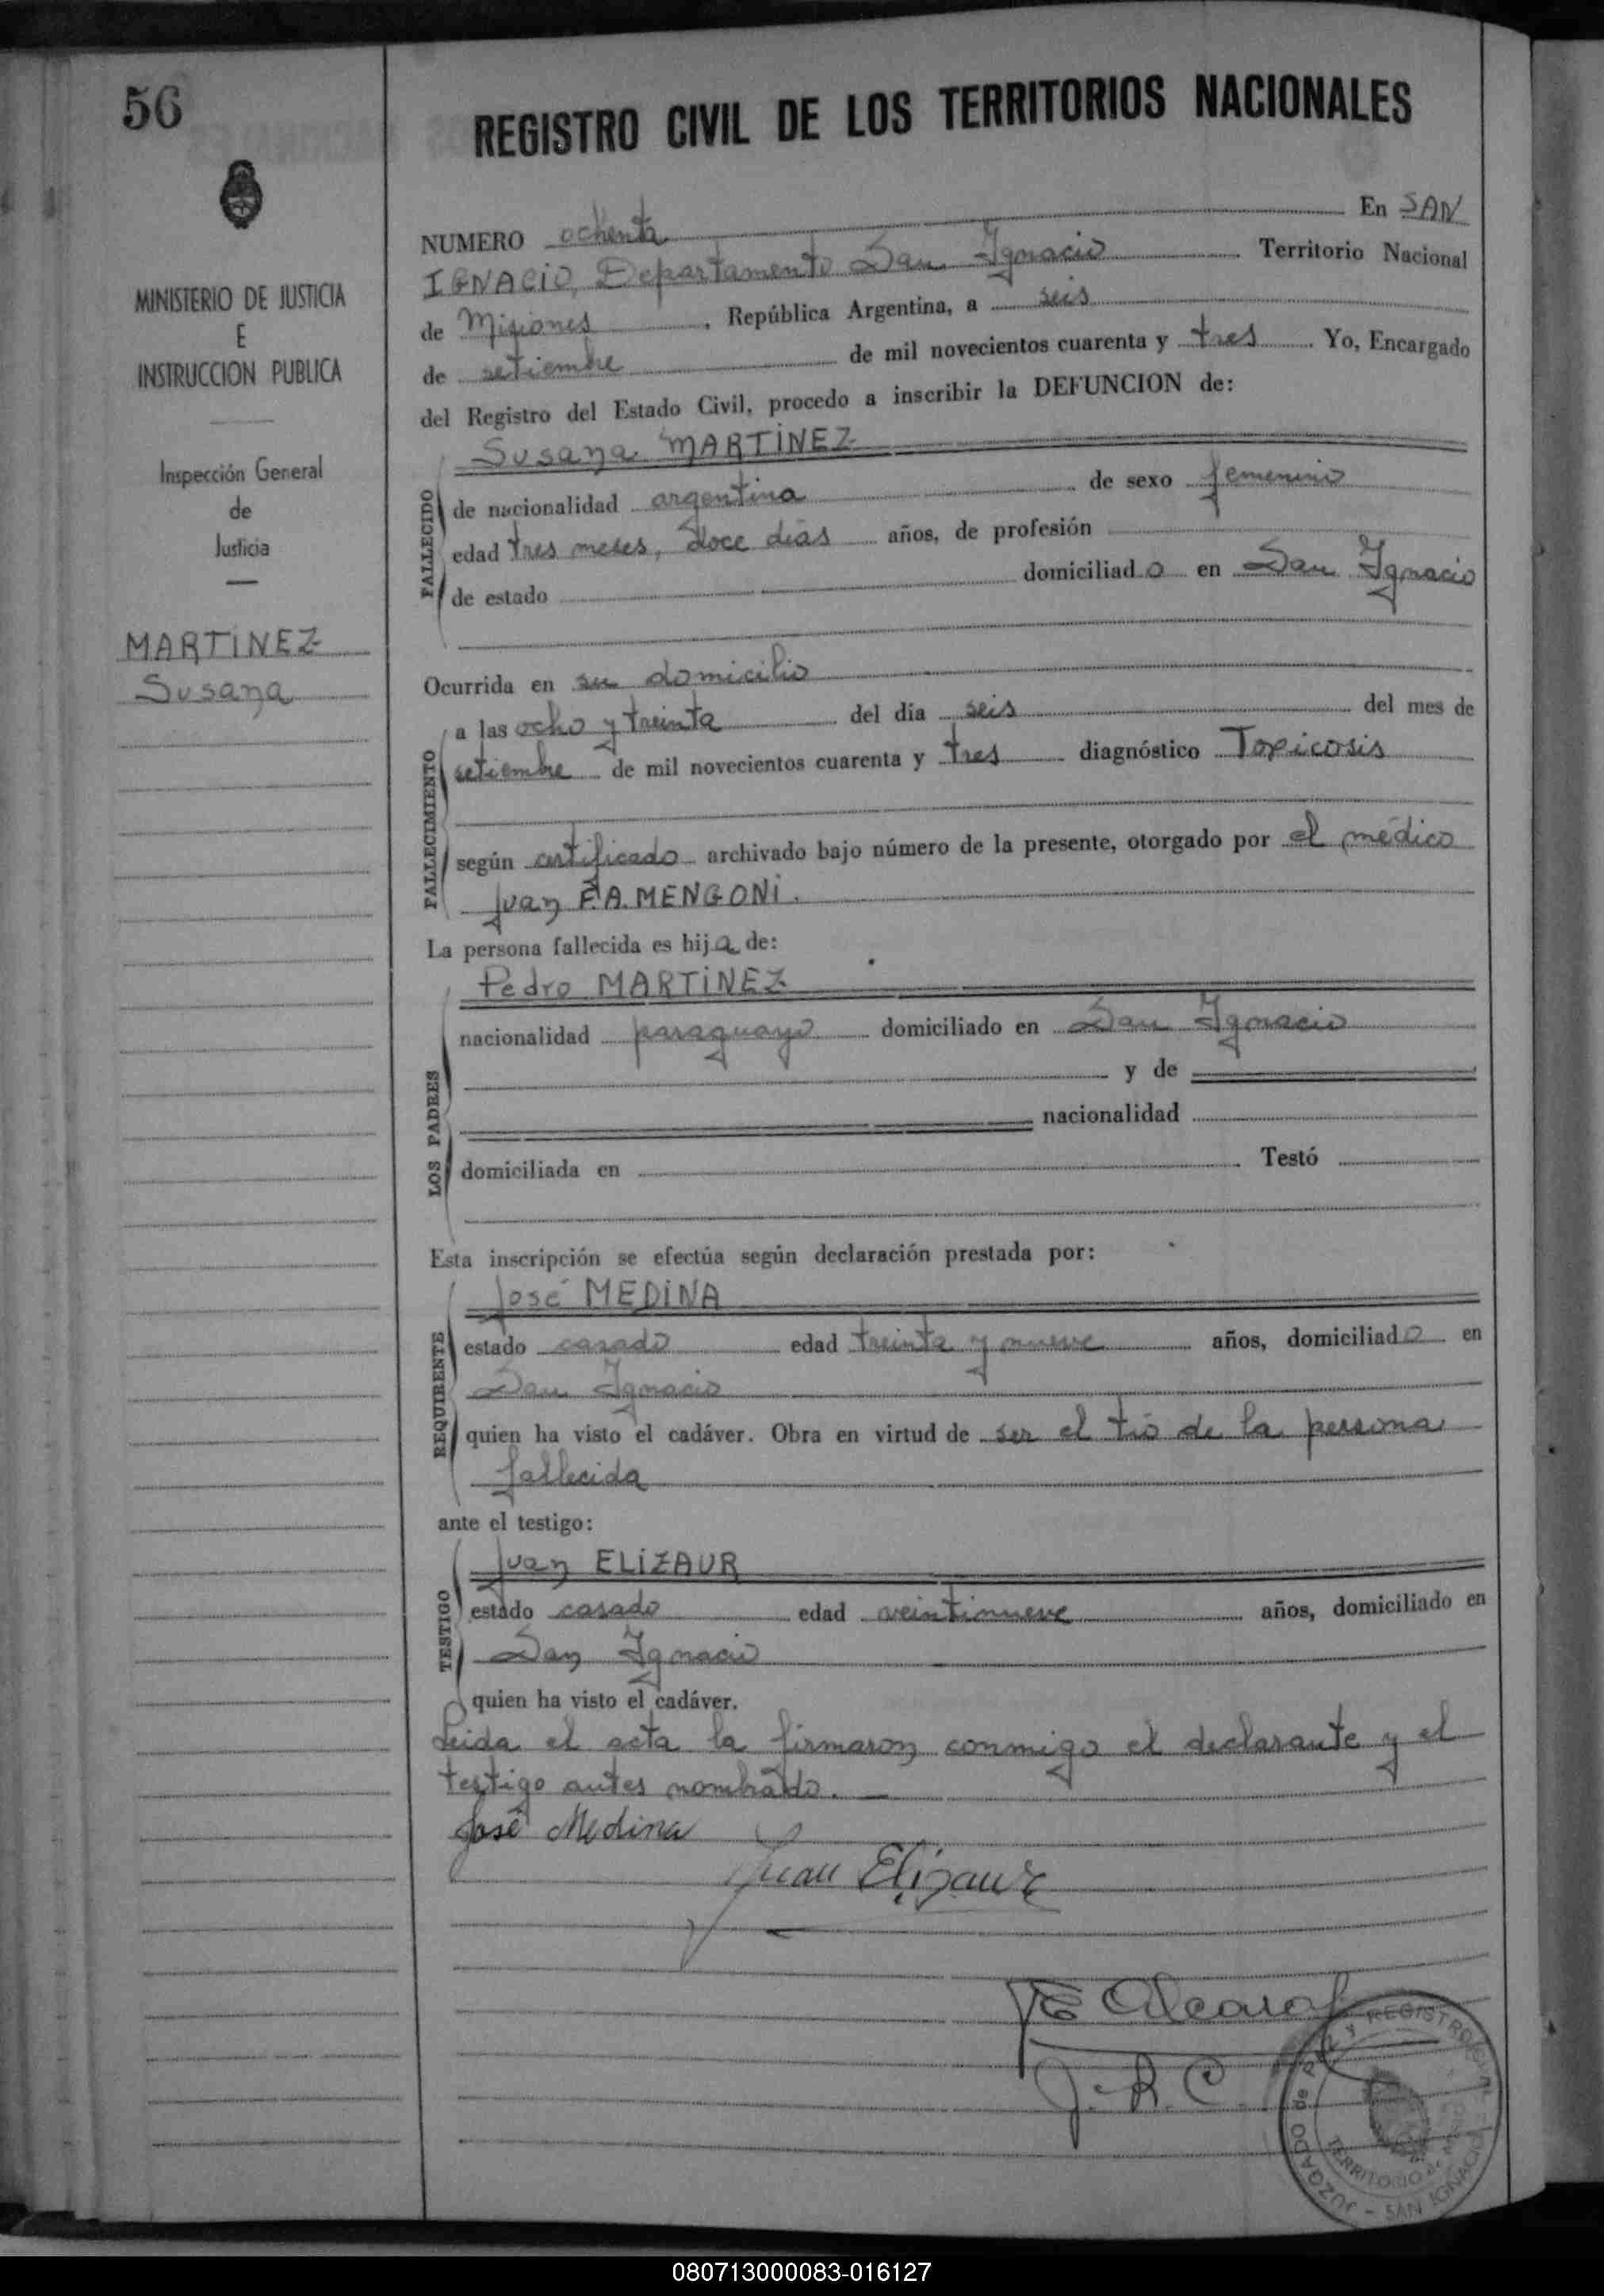 56
REGISTRO CIVIL DE LOS TERRITORIOS NACIONALES
MINISTERIO DE JUSTICIA
E
INSTRUCCION PUBLICA
Inspección General
de
Justicia
MARTINEZ
Susana
NUMERO ochenta En SAN
IGNACIO, Departamento San Ignacio Territorio Nacional
de Misiones, República Argentina, a seis
de setiembre de mil novecientos cuarenta y tres. Yo, Encargado
del Registro del Estado Civil, procedo a inscribir la DEFUNCION de:
Susana MARTINEZ
FALLECIDO
de nacionalidad argentina de sexo femenino
edad tres meses, doce días años, de profesión
de estado domiciliado en San Ignacio
Ocurrida en su domicilio
FALLECIMIENTO
a las ocho y treinta del día seis del mes de
setiembre de mil novecientos cuarenta y tres diagnóstico Toxicosis
según certificado archivado bajo número de la presente, otorgado por el médico
Juan F.A. MENGONI.
La persona fallecida es hija de:
LOS PADRES
Pedro MARTINEZ
nacionalidad paraguayo domiciliado en San Ignacio
y de
nacionalidad
domiciliada en Testó
Esta inscripción se efectúa según declaración prestada por:
REQUIRENTE
José MEDINA
estado casado edad treinta y nueve años, domiciliado en
San Ignacio
quien ha visto el cadáver. Obra en virtud de ser el tío de la persona
fallecida
ante el testigo:
TESTIGO
Juan ELIZAUR
estado casado edad veintinueve años, domiciliado en
San Ignacio
quien ha visto el cadáver.
Leida el acta la firmaron conmigo el declarante y el
testigo antes nombrado.
José Medina
Juan Elizaur
J.R.C.
JUZGADO DE PAZ Y REGISTRO CIVIL - SAN IGNACIO
TERRITORIO de MISIONES
080713000083-016127